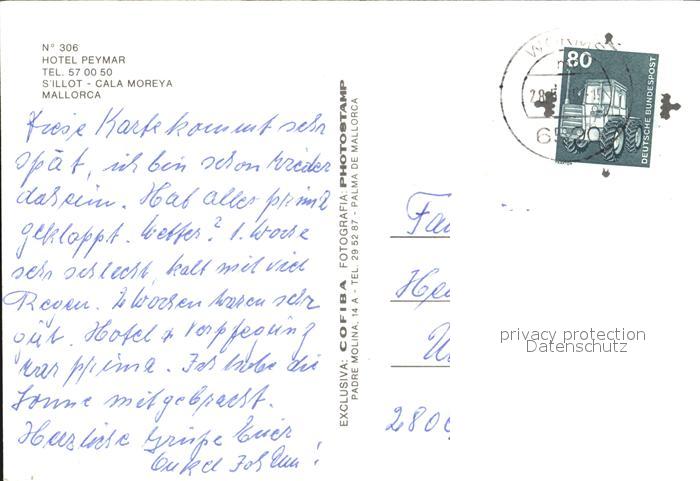 N° 306
HOTEL PEYMAR
TEL. 57 00 50
S'ILLOT - CALA MOREYA
MALLORCA
Diese Karte kommt sehr
spät, ich bin schon wieder
daheim. Hat alles prima
geklappt. Wetter? 1. Woche
sehr schlecht, kalt mit viel
Regen. 2 Wochen waren sehr
gut. Hotel + Verpflegung
war prima. Ich habe die
Sonne mitgebracht.
Herzliche Grüße Euer
Onkel
EXCLUSIVA: COFIBA FOTOGRAFIA: PHOTOSTAMP
PADRE MOLINA, 14 A - TEL. 29 52 87 - PALMA DE MALLORCA
80
DEUTSCHE BUNDESPOST
Fa
He
280
privacy protection
Datenschutz